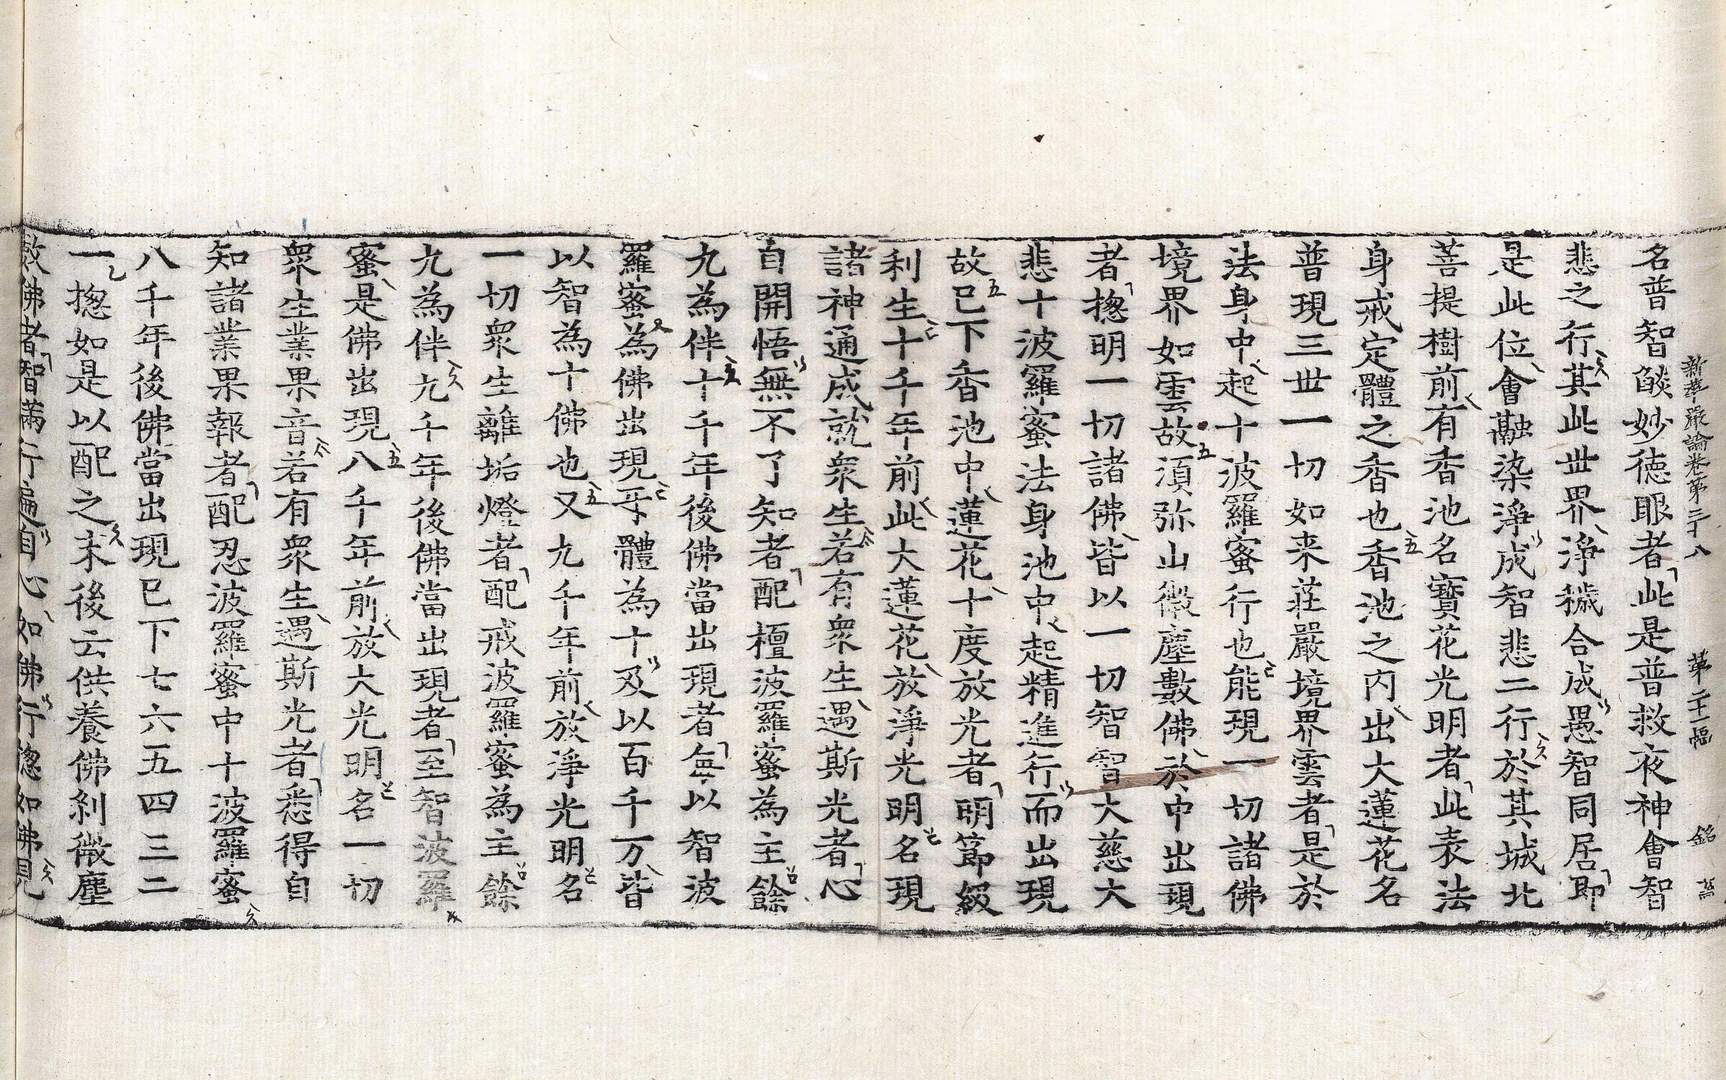 新華嚴論卷第三十八 第二十一幅 銘
名普智𦦨妙德眼者此是普救夜神會智
悲之行其此世界淨穢合成愚智同居即
是此位會融染淨成智悲二行於其城北
菩提樹前有香池名寶花光明者此表法
身戒定體之香也香池之內出大蓮花名
普現三世一切如来莊嚴境界雲者是於
法身中起十波羅蜜行也能現一切諸佛
境界如雲故須弥山微塵數佛於中出現
者揔明一切諸佛皆以一切智智大慈大
悲十波羅蜜法身池中起精進行而出現
故已下香池中蓮花十度放光者明節級
利生十千年前此大蓮花放淨光明名現
諸神通成就衆生若有衆生遇斯光者心
自開悟無不了知者配檀波羅蜜為主餘
九為伴十千年後佛當出現者每以智波
羅蜜為佛出現乎體為十及以百千万皆
以智為十佛也又九千年前放淨光明名
一切衆生離垢燈者配戒波羅蜜為主餘
九為伴九千年後佛當出現者至智波羅
蜜是佛出現八千年前放大光明名一切
衆生業果音若有衆生遇斯光者悉得自
知諸業果報者配忍波羅蜜中十波羅蜜
八千年後佛當出現已下七六五四三二
一揔如是以配之末後云供養佛刹微塵
數佛者智滿行遍自心如佛行揔如佛見